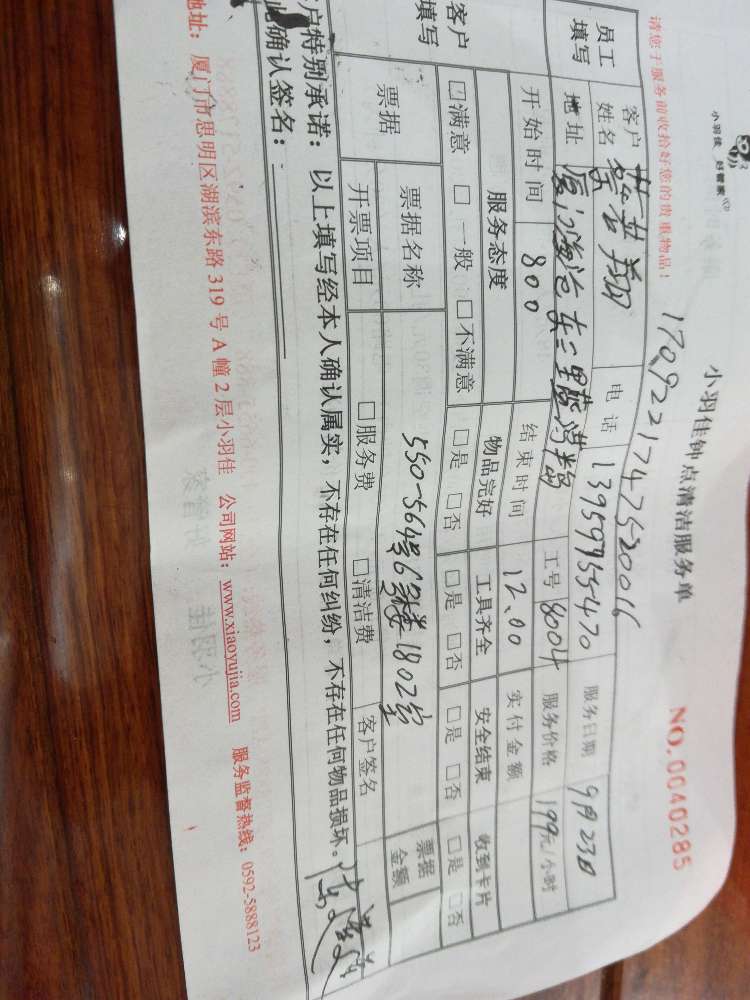 小羽佳 好管家
小羽佳钟点清洁服务单
NO.0040285
请您于服务前收拾好您的贵重物品！
1709221747520016
员工填写
客户姓名
电话 13959955470
服务日期 9月23日
地址 厦门海沧东三里
工号 8004
服务价格 199元/小时
开始时间 800
结束时间 12.00
实付金额
客户填写
服务态度 物品完好 工具齐全 安全结束 收到卡片
☑满意 □一般 □不满意 □是 □否 □是 □否 □是 □否 □是 □否
票据
票据名称 550-564号6号楼1802室
票据金额
开票项目 □服务费 □清洁费 客户签名
户特别承诺：以上填写经本人确认属实，不存在任何纠纷，不存在任何物品损坏。
确认签名：
地址：厦门市思明区湖滨东路319号A幢2层小羽佳 公司网站：www.xiaoyujia.com 服务监督热线：0592-5888123